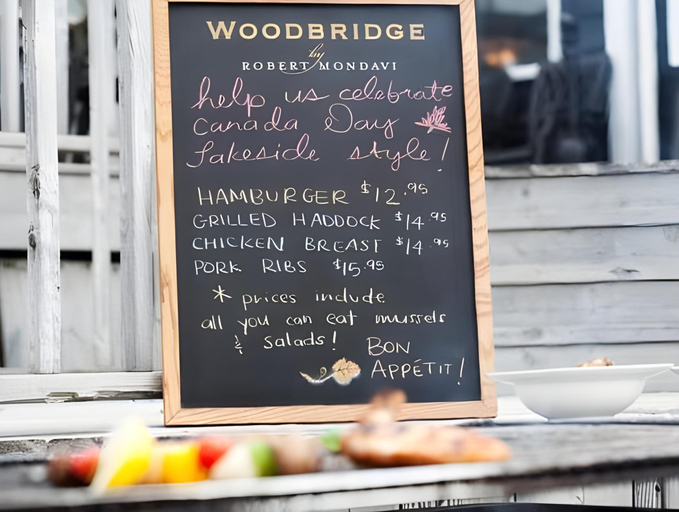 WOODBRIDGE
by
ROBERT MONDAVI
help us celebrate
Canada Day
Lakeside style!
HAMBURGER $12.95
GRILLED HADDOCK $14.95
CHICKEN BREAST $14.95
PORK RIBS $15.95
* prices include
all you can eat mussels
& salads!
BON
APPÉTIT!